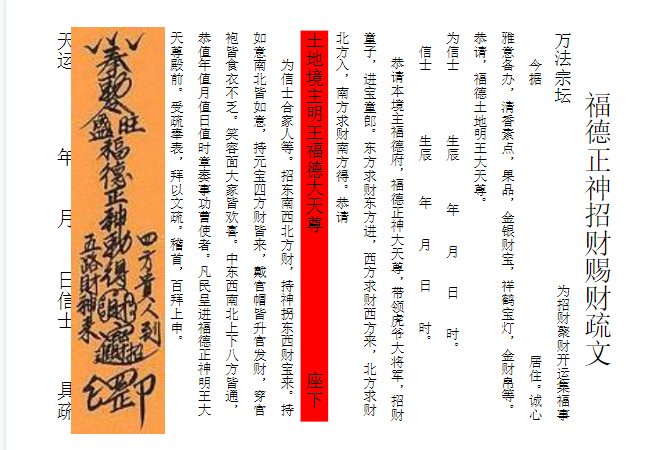 福德正神招财赐财疏文
万法宗坛 为招财聚财开运集福事
今据 居住。诚心
雅意备办，清香素点，果品，金银财宝，祥鹤宝灯，金财帛等。
恭请，福德土地明王大天尊。
为信士 生辰 年 月 日 时。
信士 生辰 年 月 日 时。
恭请本境主福德府，福德正神大天尊，带领虎爷大将军，招财
童子，进宝童郎。东方求财东方进，西方求财西方来，北方求财
北方入，南方求财南方得。恭请
土地境主明王福德大天尊 座下
为信士合家人等。招东南西北方财，持神拐东西财宝来。持
如意南北皆如意，持元宝四方财皆来，戴官帽皆升官发财，穿官
袍皆食衣不乏。笑容面大家皆欢喜。中东西南北上下八方皆通，
恭值年值月值日值时章奏事功曹使者。凡民呈进福德正神明王大
天尊殿前。受疏奉表，拜以文疏。稽首，百拜上申。
四方貴人到
奉勅 旺盛 福德正神勅得 招財進寶
五路財神来
天运 年 月 日信士 具疏